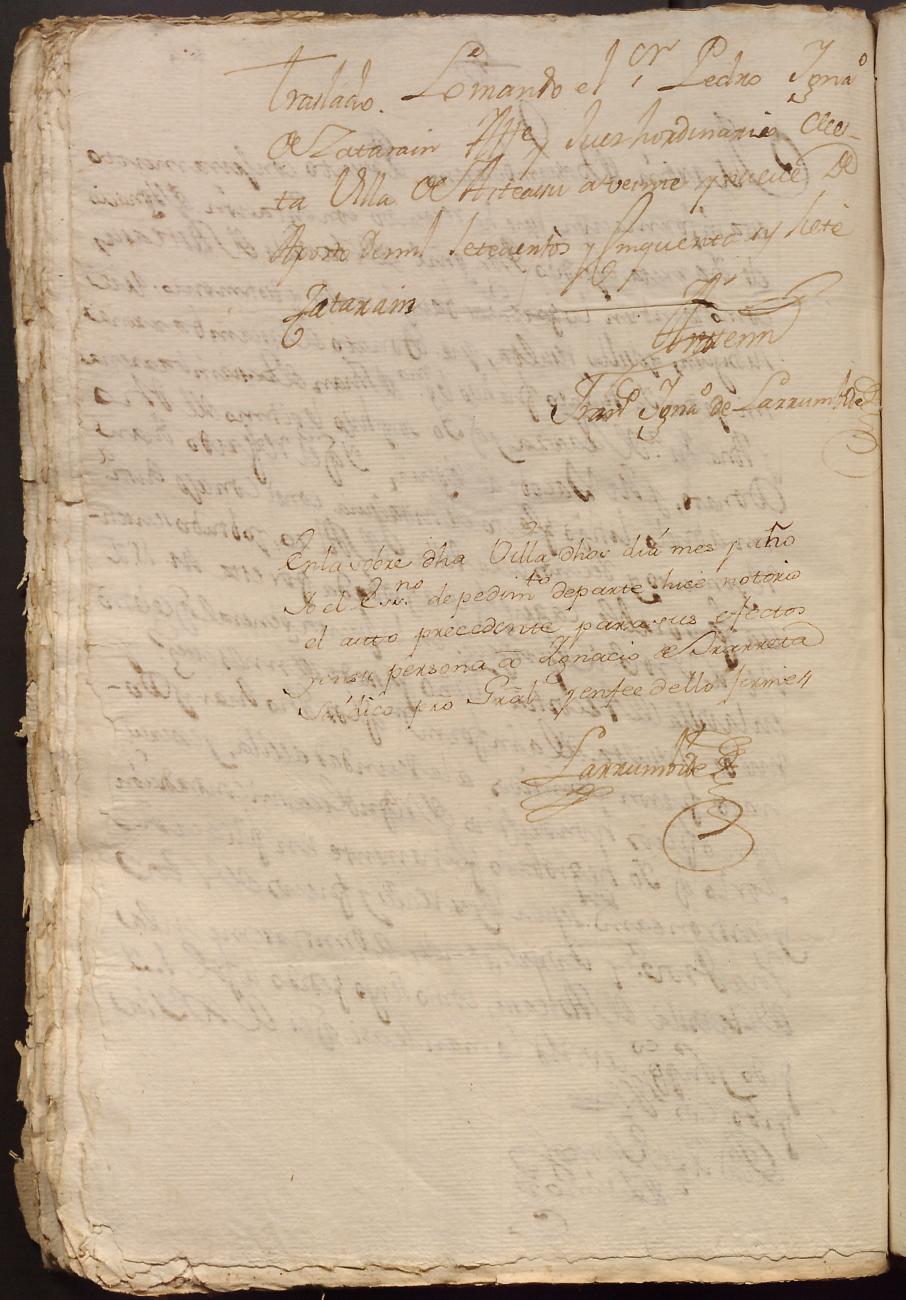 Traslado. Lo mando el sr Pedro Ygnaº
de Zatarain Alffe y Jues hordinario de es-
ta Villa de Asteasu a veinte y nueve De
Agosto de mil setecientos y Cinquenta y siete
Zatarain
Antemi
Franco Ygnaº de Larrumbide
En la sobre dha Villa dhos dia mes y año
Yo el Esno de pedimto de parte hice notorio
el autto precedente para sus efectos
y en su persona a Ygnacio de Ysarreta
Sindico pro Gral y en fee dello firme
Larrumbide